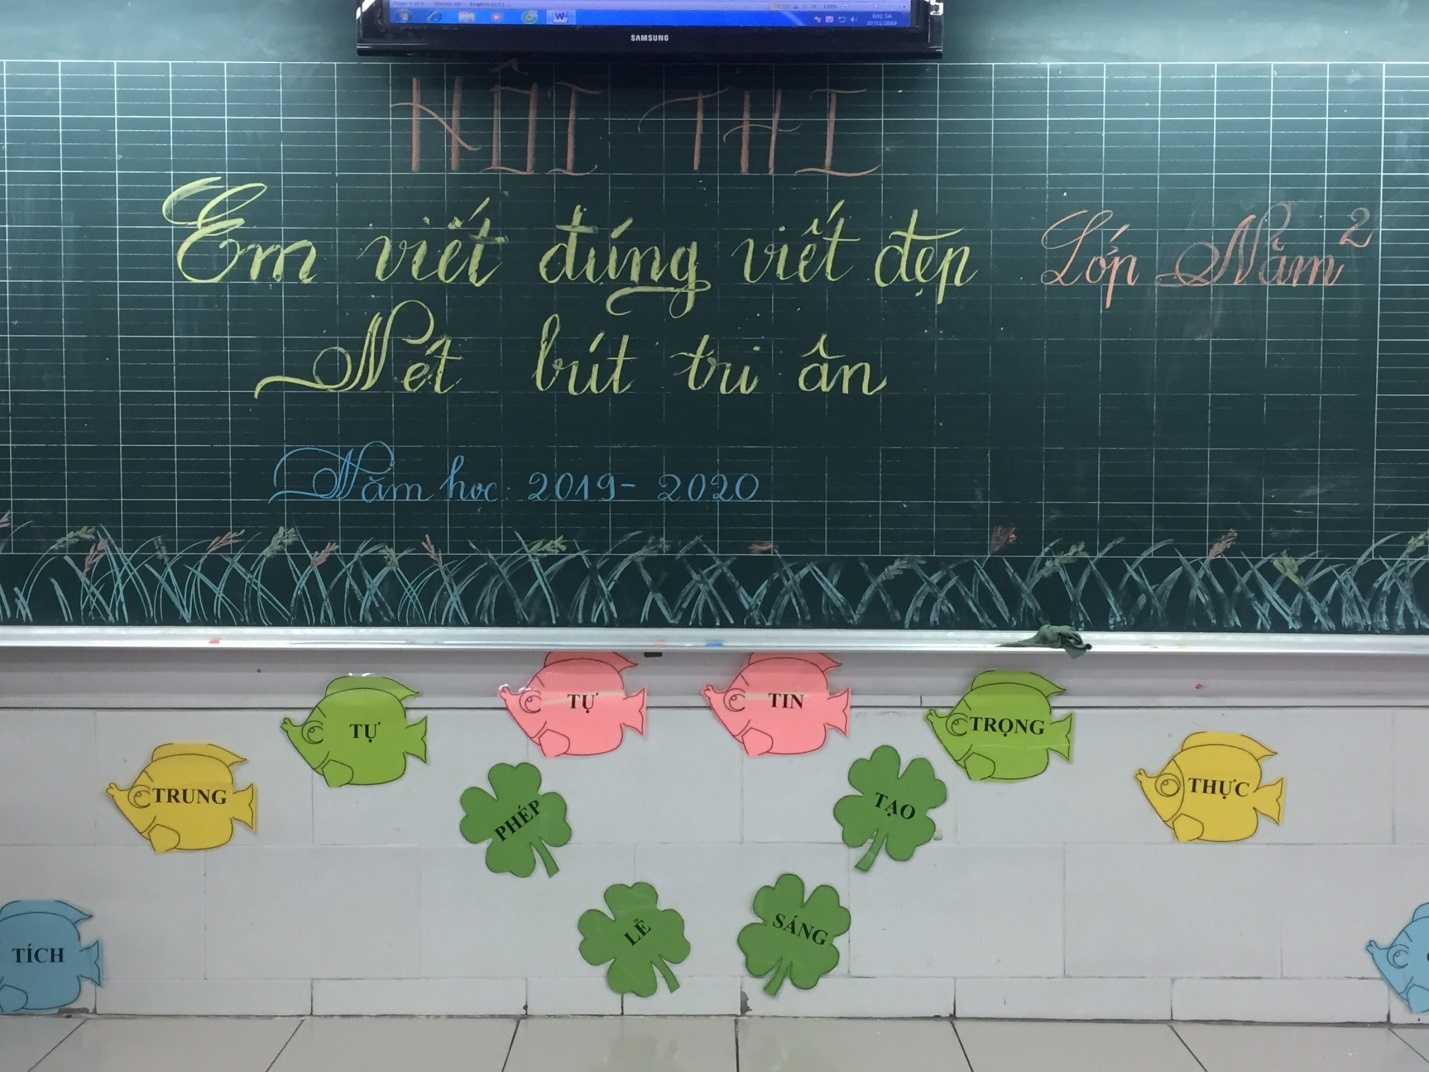 SAMSUNG
HỘI THI
Em viết đúng viết đẹp
Lớp Năm 2
Nét bút tri ân
Năm học: 2019- 2020
TỰ
TỰ
TIN
TRỌNG
TRUNG
THỰC
PHÉP
TẠO
LỄ
SÁNG
TÍCH